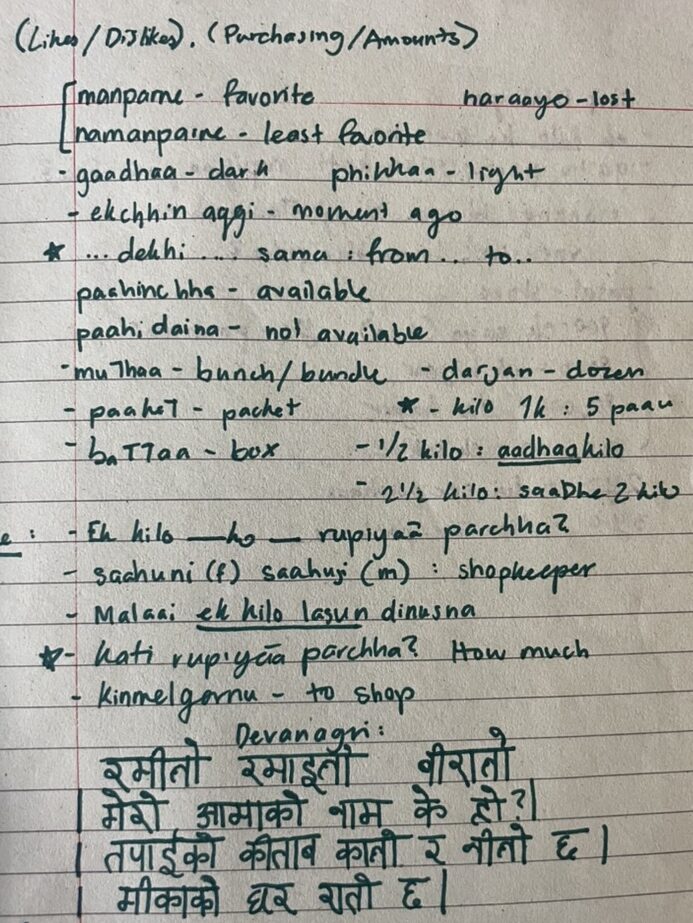 (Likes/Dislikes). (Purchasing/Amounts)
manparne - favorite haraayo - lost
namanparne - least favorite
- gaadhaa - dark phikkaa - light
- ekchhin aggi - moment ago
* ... dekhi .... sama : from ... to..
paahinchha - available
paahidaina - not available
- muThaa - bunch/bundle - darjan - dozen
- paakeT - packet * - kilo 1k : 5 paau
- baTTaa - box - 1/2 kilo : aadhaakilo
- 2 1/2 kilo: saaDhe 2 kilo
e : - Ek kilo — ko — rupiyaã parchha?
- saahuni (f) saahuji (m) : shopkeeper
- Malaai ek kilo lasun dinusna
* - kati rupiyãa parchha? How much
- kinmelgarnu - to shop
Devanagri:
रमीतो रमाइलो बीरालो
| मेरो आमाको नाम के हो? |
| तपाईको कीताब कालो र नीलो छ |
| मीकाको घर रातो छ |